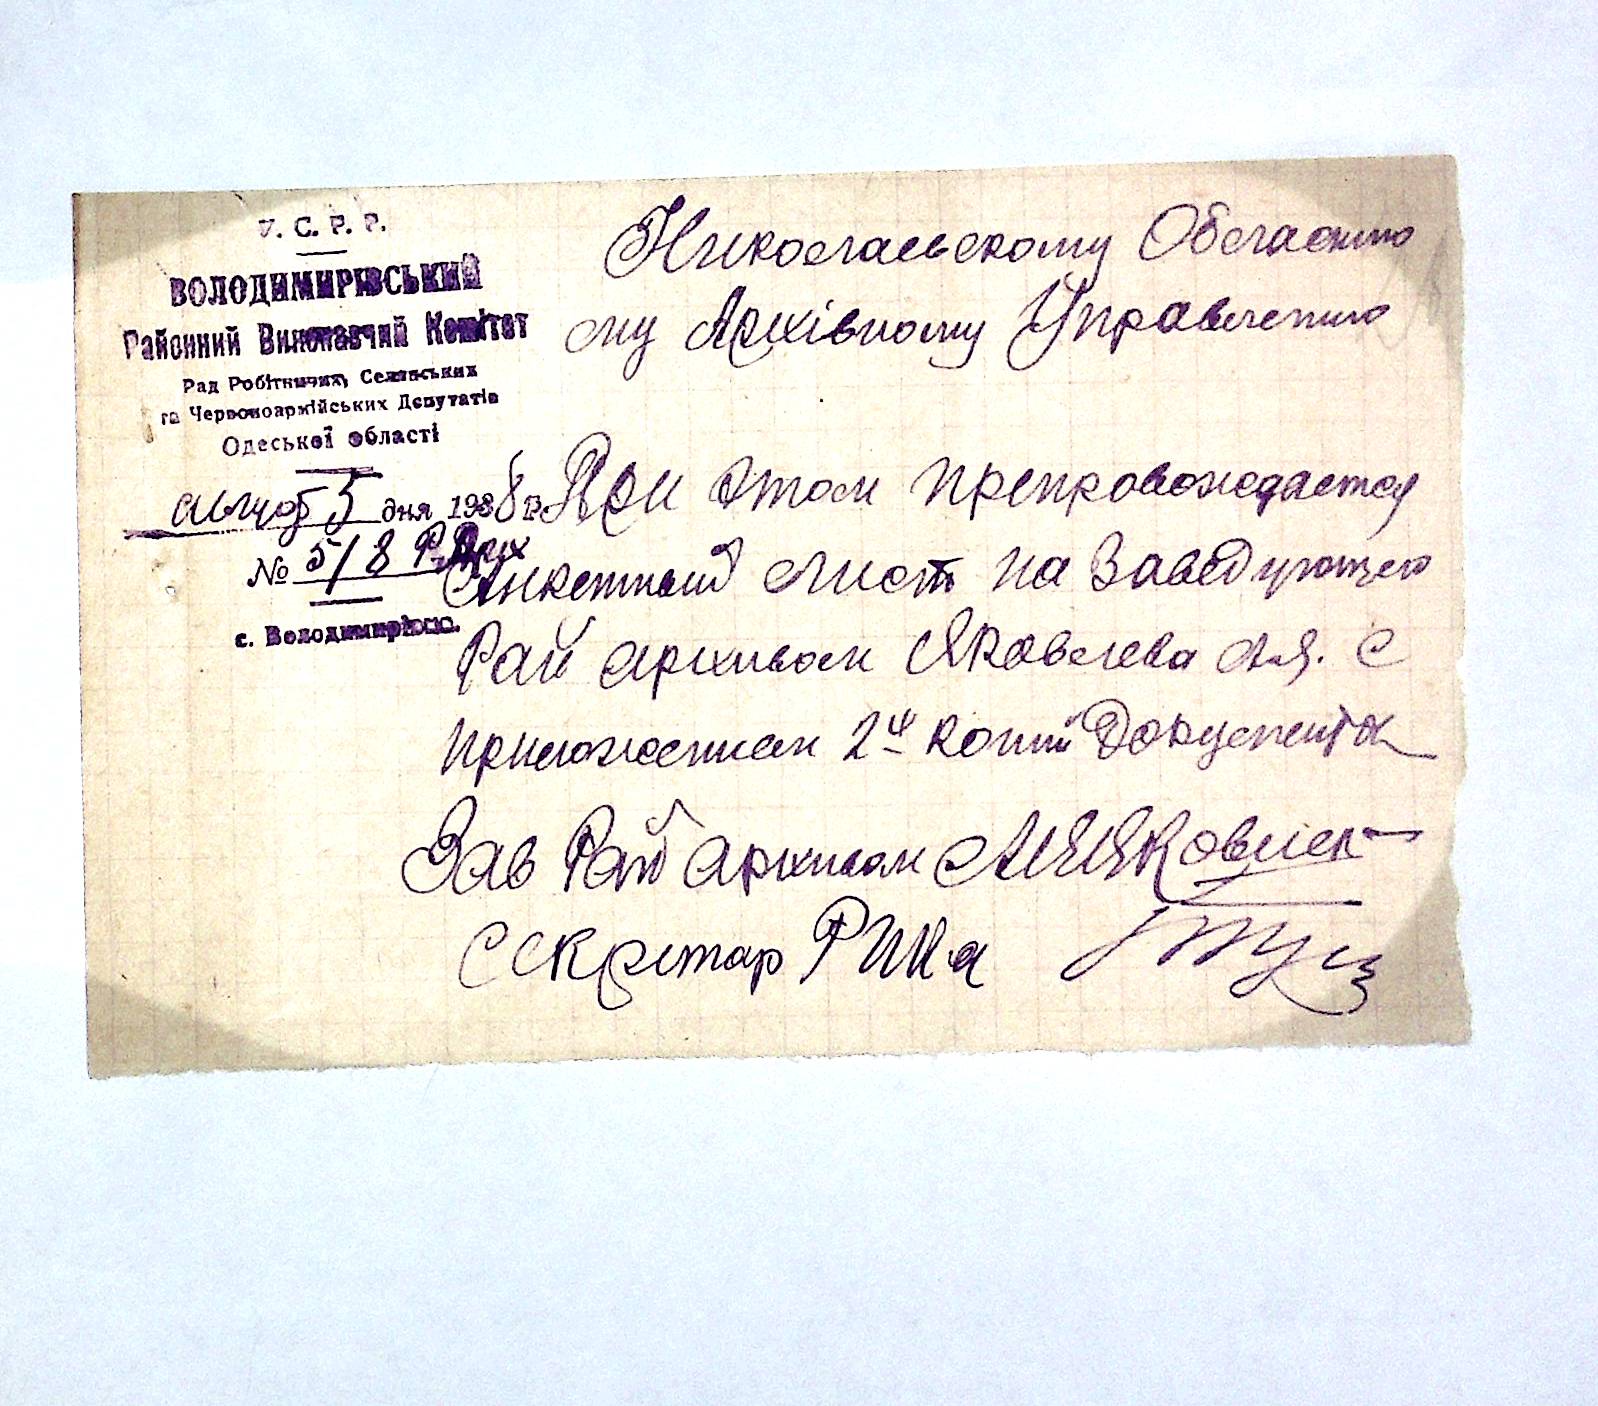 У. С. Р. Р.
ВОЛОДИМИРІВСЬКИЙ
Районний Виконавчий Комітет
Рад Робітничих, Селянських
та Червоноармійських Депутатів
Одеської області
август 5 дня 1938 р.
№ 5/8 Р. Арх
с. Володимирівка.
Николаевскому Областно
му Архівному Управлению
При этом препровождается
Анкетный лист на Заведующего
Рай архивом Яковлева А.Я. с
приложением 2х копий Документа
Зав Рай архивом А Я Яковлев
Секретар РИКа